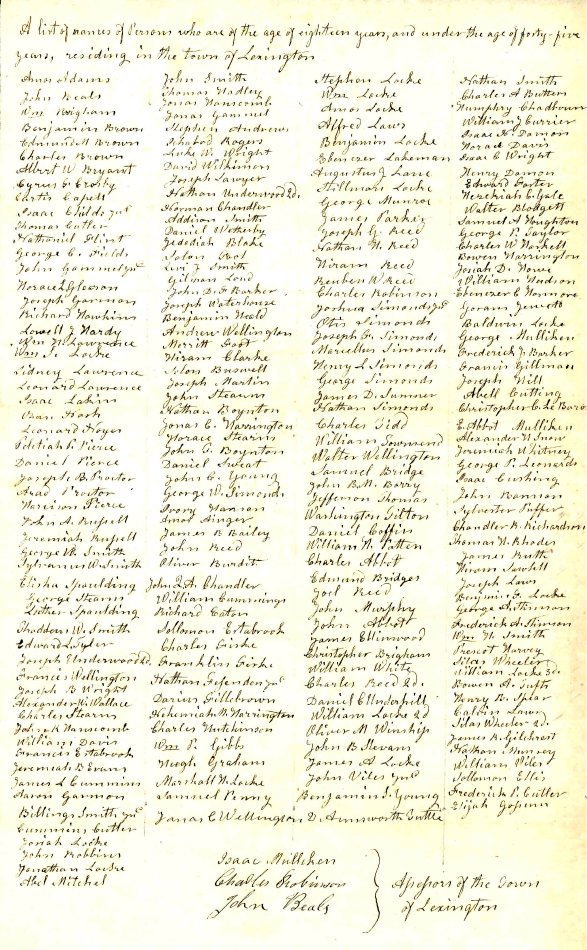 A list of names of Persons who are of the age of eighteen years, and under the age of forty-five
years, residing in the town of Lexington
Amos Adams
John Beals
Wm Brigham
Benjamin Brown
Edmund H Brown
Charles Brown
Albert W Bryant
Cyrus G Crosby
Curtis Capell
Isaac Childs jur
Thomas Cutler
Nathaniel Flint
George C. Fields
John Gammel jur
Horace L Gleason
Joseph Garmon
Richard Hawkins
Lowell J Hardy
Wm H Lawrence
Wm S. Locke
Sidney Lawrence
Leonard Lawrence
Isaac Lakin
Oran Nash
Leonard Noyes
Peletiah P. Pierce
Daniel Pierce
Joseph B. Proctor
Arad Proctor
Harrison Pierce
John A. Russell
Jeremiah Russell
George W. Smith
Sylvanus W Smith
Elisha Spaulding
George Stearns
Luther Spaulding
Thaddeus W. Smith
Edward L Tyler
Joseph Underwood 2d.
Francis Wellington
Joseph B Wright
Alexander W. Wallace
Charles Stearns
John K Hanscomb
William Davis
Francis Estabrook
Jeremiah B Evans
James L Cummins
Aaron Garmon
Billings Smith jur
Cummins Cutler
Josiah Locke
John Robbins
Jonathan Locke
Abel Mitchel
John Smith
Thomas Hadley
Jonas Hanscomb
Jonas Gammel
Stephen Andrews
Ichabod Rogers
Luke W. Wright
David Wilkinson
Joseph Sawyer
Nathan Underwood 2d.
Norman Chandler
Addison Smith
Daniel Wetherby
Jedediah Blake
Solon
Levi J Smith
Gilman Loud
John D. F Barker
Joseph Waterhouse
Benjamin Weld
Andrew Wellington
Merritt
Hiram Clarke
Solon Buswell
Joseph Martin
John Stearns
Nathan Boynton
Jonas C. Harrington
Horace Stearns
John G. Boynton
Daniel Sweat
John C. Young
George W. Simonds
Ivory Hanson
Amos Singer
James B Bailey
John Reed
Oliver Burditt
John Q. A. Chandler
William Cummings
Richard Eaton
Solomon Estabrook
Charles Fiske
Franklin Fiske
Nathan Fessenden jur
Darius Fillebrown
Nehemiah M. Harrington
Charles Hutchinson
Wm P. Gibbs
Hugh Graham
Marshall W. Locke
Samuel Penny
Jonas C Wellington
Stephen Locke
Wm Locke
Amos Locke
Alfred Laws
Benjamin Locke
Ebenezer Lakeman
Augustus J Lane
Stillman Locke
George Munroe
James Parker
Joseph G. Reed
Nathan H. Reed
Hiram Reed
Reuben W Reed
Charles Robinson
Joshua Simonds jur
Otis Simonds
Joseph G. Simonds
Marcellus Simonds
Henry L Simonds
George Simonds
James D. Sumner
Nathan Simonds
Charles Tidd
William Townsend
Walter Wellington
Samuel Bridge
John B. M. Berry
Jefferson Thomas
Washington Tilton
Daniel Coffin
William W. Patten
Charles Abbot
Edmund Bridges
Joel Reed
John Murphy
John Abbot
James Ellinwood
Christopher Brigham
William White
Charles Reed 2d.
Daniel C Underhill
William Locke 2d
Oliver M Winship
John B Stevens
James A Locke
John Viles jur
Benjamin F. Young
D. Ainsworth Tuttle
Nathan Smith
Charles A Butters
Humphry Chadbourn
William J Currier
Isaac H Damon
Horace Davis
Isaac C Wright
Henry Damon
Edward Foster
Hezekiah C Gale
Walter Blodgett
Samuel A Houghton
George P. Taylor
Charles W Haskell
Bowen Harrington
Josiah D. Howe
William Hudson
Ebenezer C Harmore
Goram Jewett
Baldwin Locke
George Mulliken
Frederick J. Barker
Francis Gillman
Joseph Hill
Abell Cutting
Christopher C Le Baron
E. Abbot Mulliken
Alexander N. Snow
Jeremiah Whitney
George P. Leonards
Isaac Cushing
John Bannan
Sylvester Puffer
Chandler R. Richardson
Thomas H. Rhodes
James Ruth
Hiram Sewell
Joseph Laws
Benjamin G. Locke
George Stimson
Frederick A Stimson
Wm H. Smith
Prescot Harvey
Silas Wheeler
William Locke 3d.
Bowen A. Tufts
Henry B. Spear
Calvin Laws
Silas Wheeler 2d.
James R. Gilchrest
Nathan Munroy
William Viles
Solloman Ellis
Frederick P. Cutler
Elijah
Isaac Mulliken
Charles Robinson
John Beals
Assessors of the Town
of Lexington